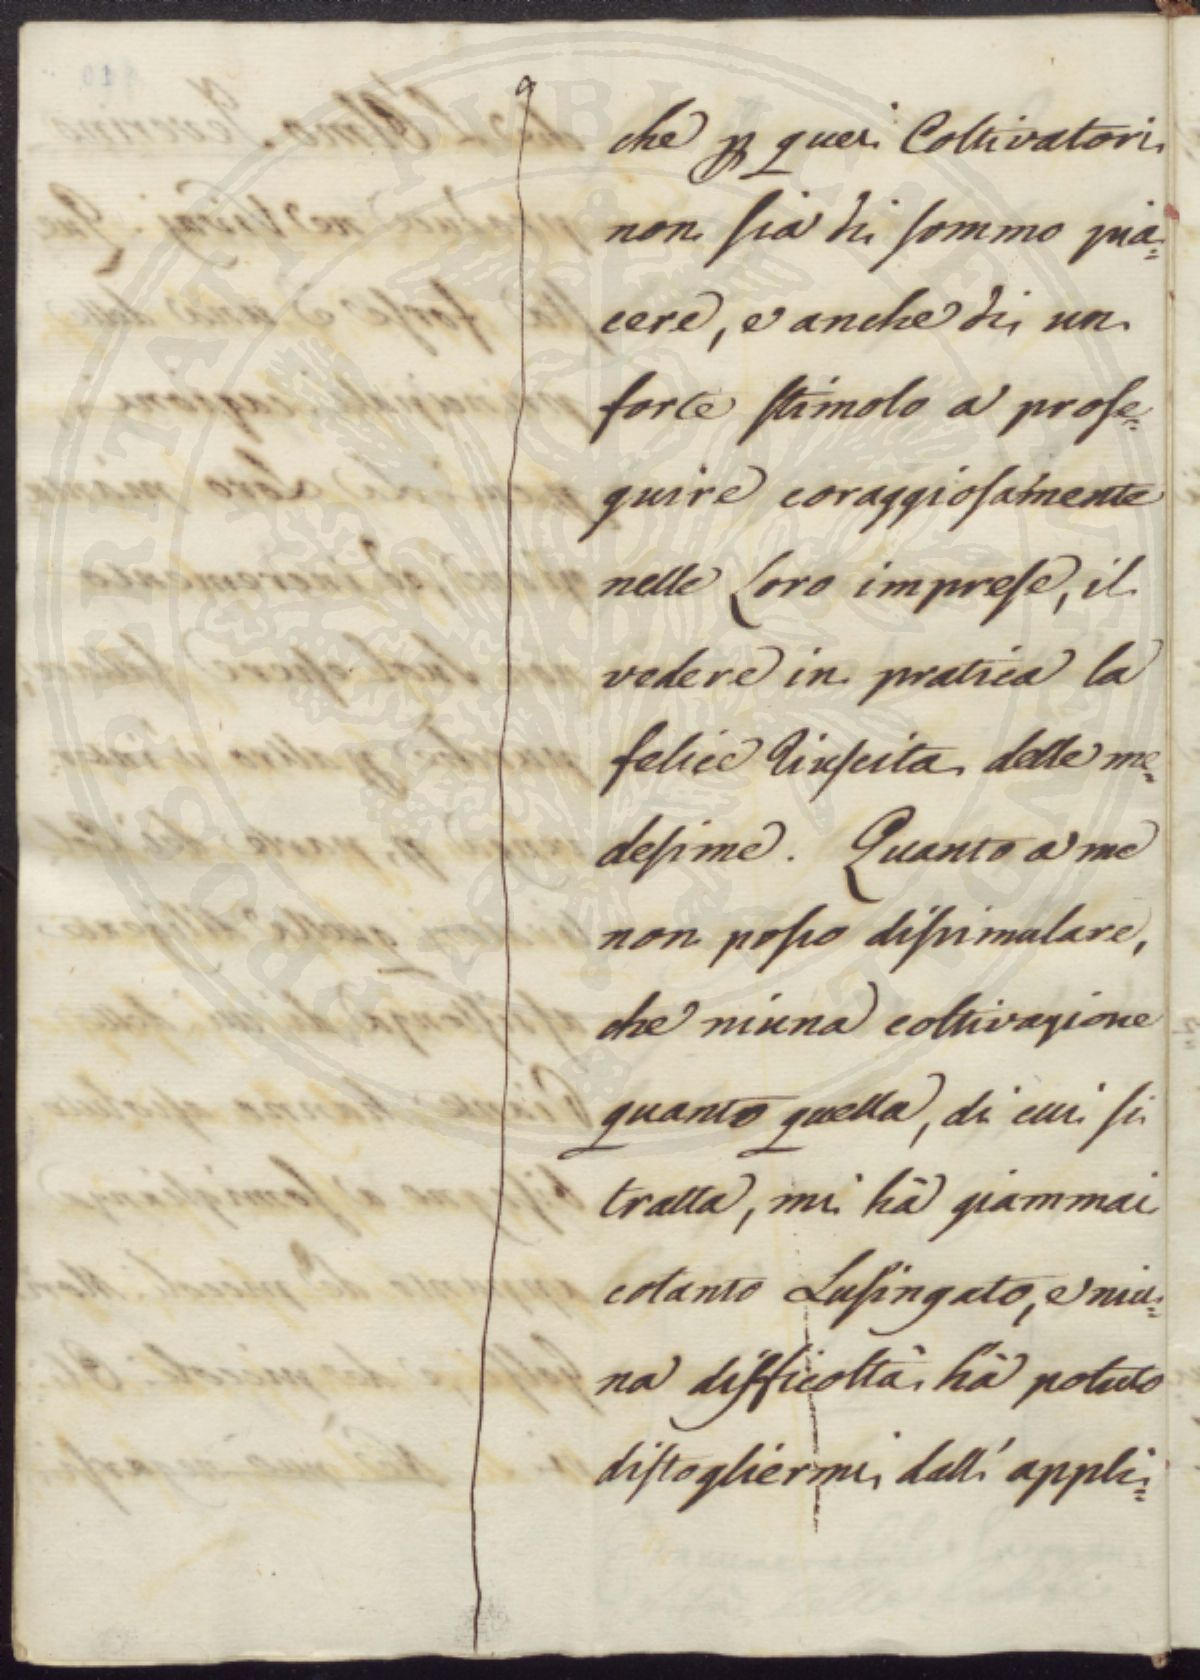 che p quei Coltivatori
non sia di sommo pia=
cere, e anche di un
forte stimolo a prose=
guire coraggiosamente
nelle Loro imprese, il
vedere in pratica la
felice Riuscita delle me=
desime. Quanto a me
non posso dissimulare,
che niuna coltivazione
quanto quella, di cui si
tratta, mi hà giammai
cotanto Lusingato, e niu=
na difficoltà hà potuto
distogliermi dall' appli=